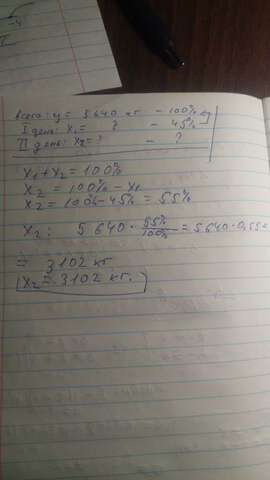 -4
I
всего: y = 5 640 кг - 100%
I день: x₁ = ? - 45%
II день: x₂ = ? - ?
x₁ + x₂ = 100%
x₂ = 100% - x₁
x₂ = 100% - 45% = 55%
x₂: 5 640 · 55%/100% = 5 640 · 0,55 =
= 3102 кг
x₂ = 3102 кг.